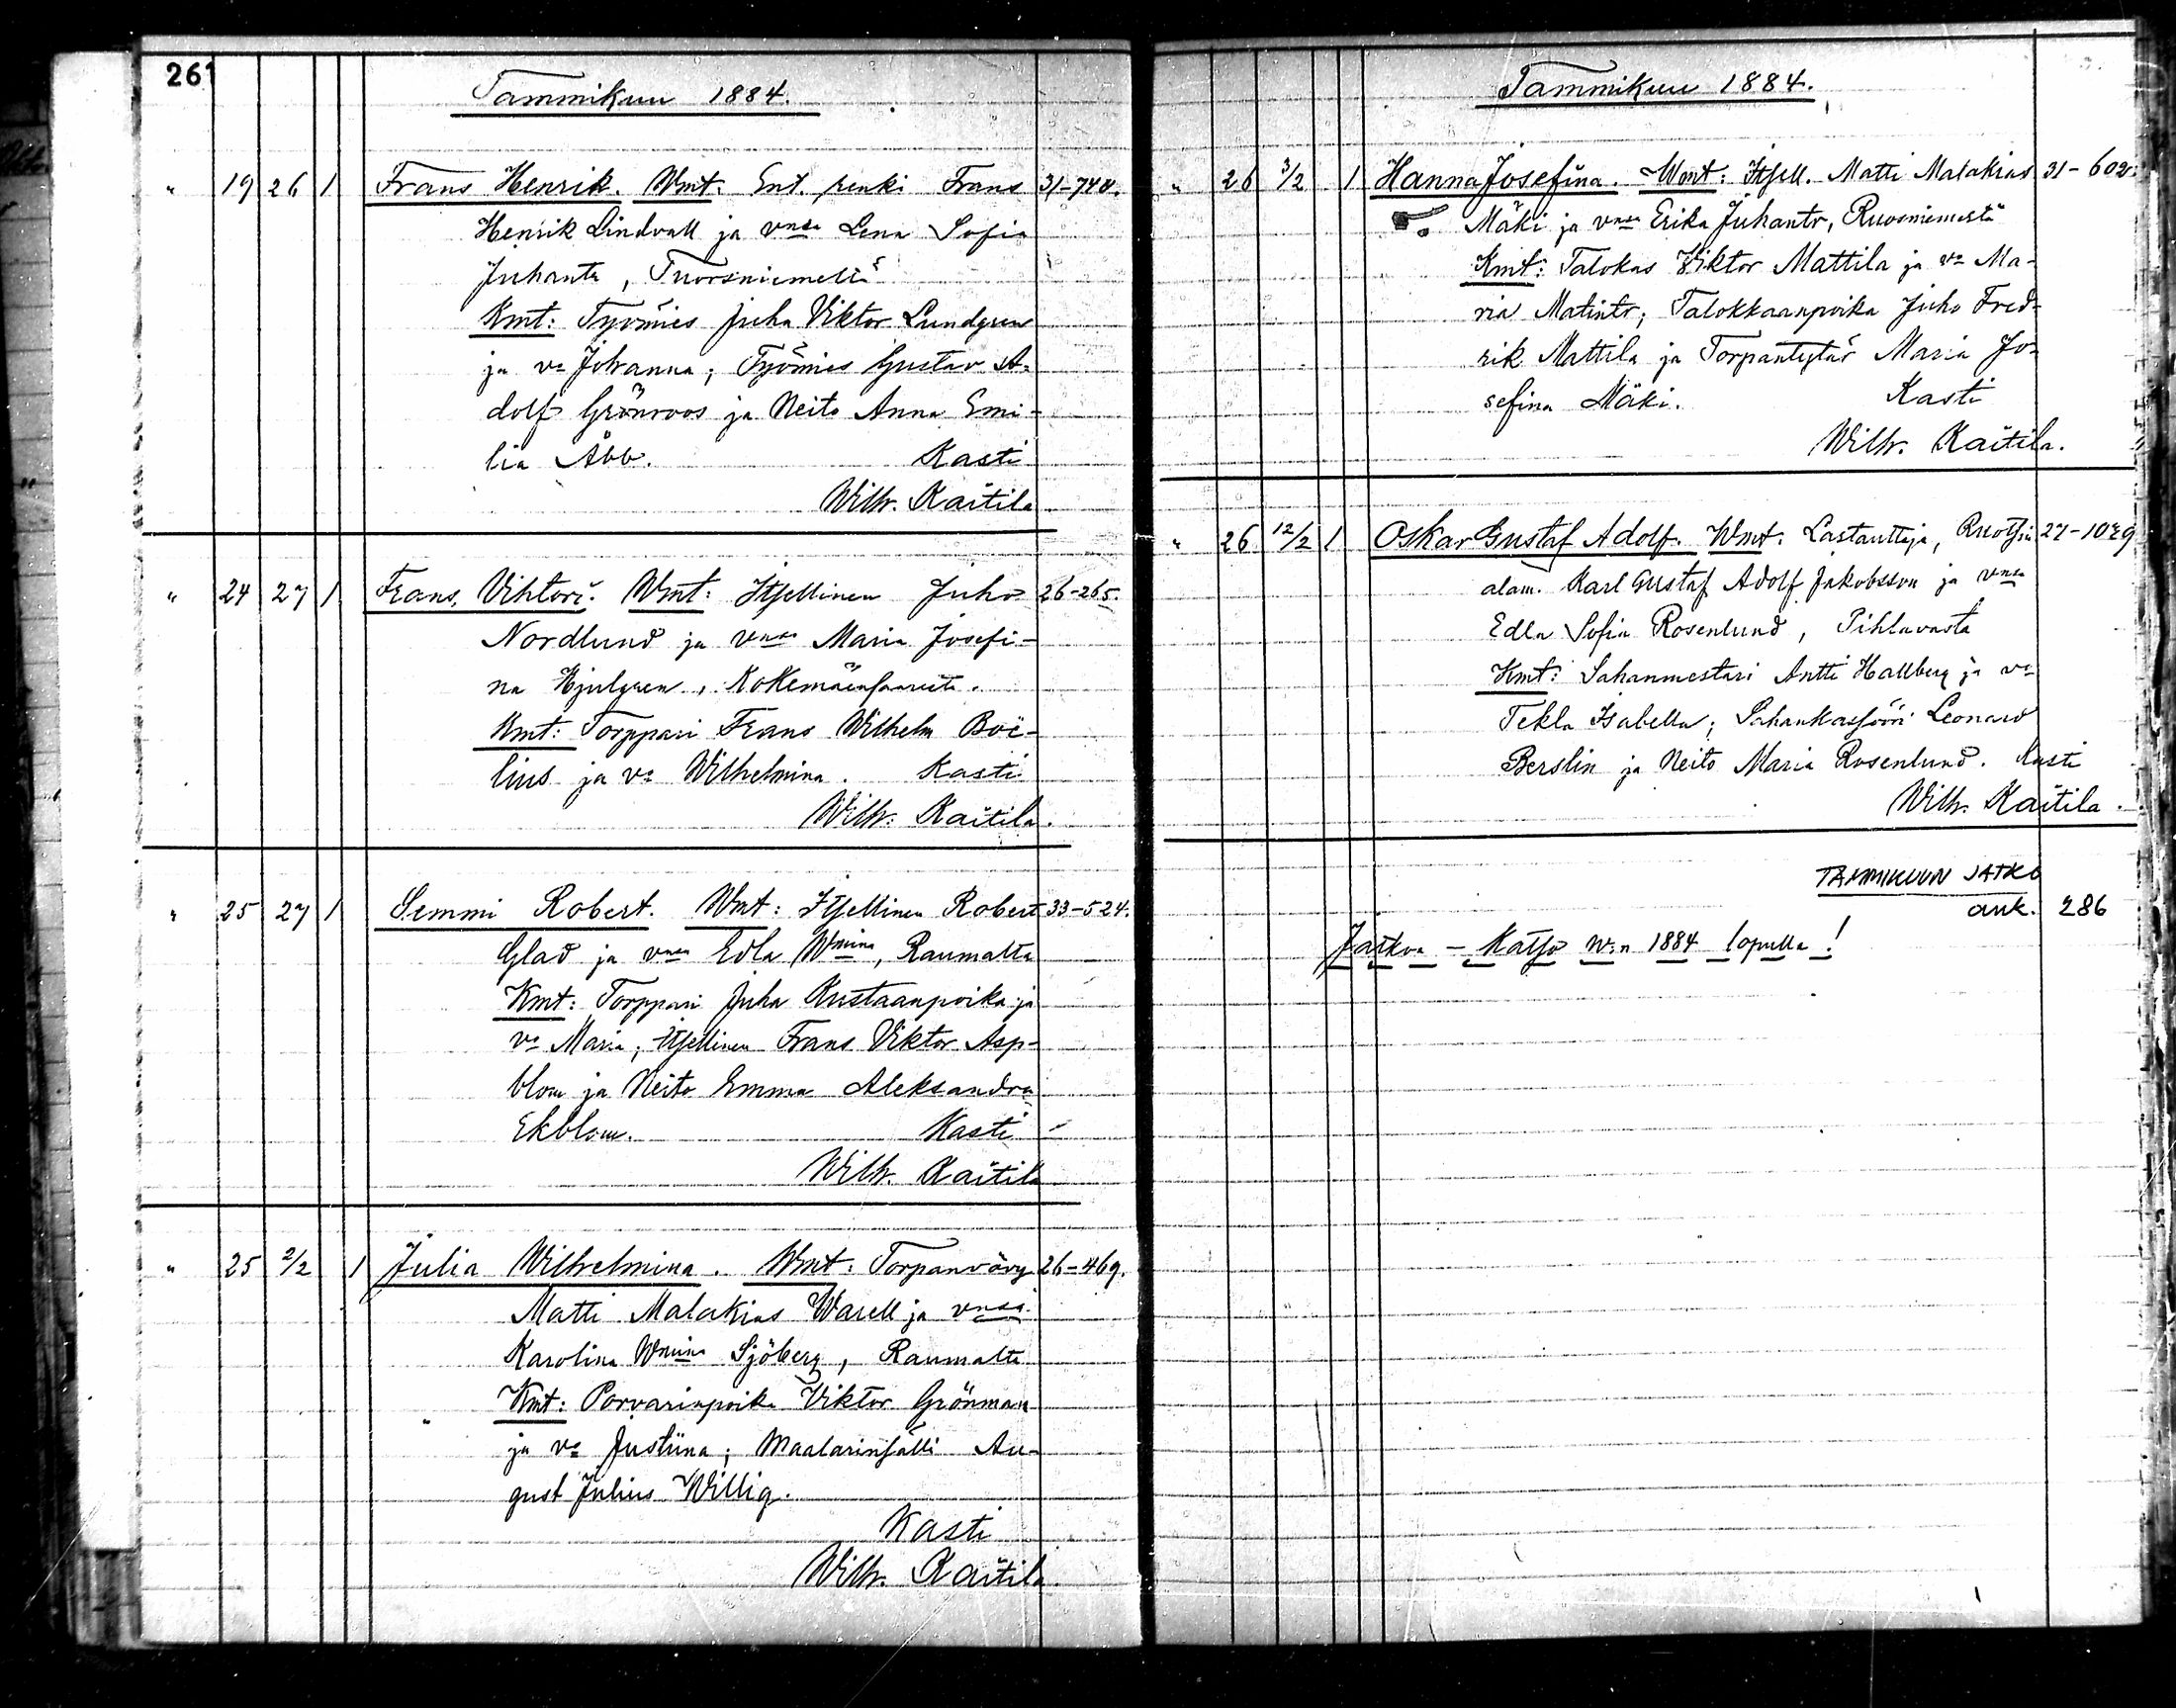 261
Tammikuu 1884.
" 19 26 1 Frans Henrik. Wmt: Ent. renki Frans 31-740.
Henrik Lindvall ja vnsa Lena Sofia
Juhantr, Tuorsniemeltä
Kmt: Työmies Juha Viktor Lundgren
ja va Johanna; Työmies Gustav A-
dolf Grönroos ja Neito Anna Emi-
lia Abb. Kasti
Wilh. Kaitila
" 24 27 1 Frans Vihtori. Wmt: Itsellinen Juho 26-265.
Nordlund ja vnsa Maria Josefi-
na Hjulgren, Kokemäensaarelta.
Kmt: Torppari Frans Wilhelm Boë-
lius ja va Wilhelmina. Kasti
Wilh. Kaitila.
" 25 27 1 Semmi Robert. Wmt: Itsellinen Robert 33-524.
Glad ja vnsa Edla Wmina, Raumalta
Kmt: Torppari Juha Kustaanpoika ja
va Maria; Itsellinen Frans Viktor Asp-
blom ja Neito Emma Aleksandra
Ekblom. Kasti
Wilh. Kaitila
" 25 2/2 1 Julia Wilhelmina. Wmt: Torpanvävy 26-469.
Matti Malakias Warell ja vnsa
Karolina Wmina Sjöberg, Raumalta
Kmt: Porvarinpoika Viktor Grönman
ja va Justiina; Maalarinsälli Au-
gust Julius Willig.
Kasti
Wilh. Kaitila
Tammikuu 1884.
" 26 3/2 1 Hanna Josefina. Wmt: Itsell. Matti Malakias 31-602.
Mäki ja vnsa Erika Juhantr, Ruosniemestä
Kmt: Talokas Viktor Mattila ja va Ma-
ria Matintr; Talokkaanpoika Juho Fred-
rik Mattila ja Torpantytär Maria Jo-
sefina Mäki. Kasti
Wilh. Kaitila.
" 26 12/2 1 Oskar Gustaf Adolf. Wmt: Lastauttaja, Ruotsin 27-1029
alam. Karl Gustaf Adolf Jakobsson ja vnsa
Edla Sofia Rosenlund, Pihlavasta
Kmt: Sahanmestari Antti Hallberg ja va
Tekla Isabella; Sahankassööri Leonard
Berslin ja Neito Maria Rosenlund. Kasti
Wilh. Kaitila.
TAMMIKUUN JATKO
auk. 286
Jatkoa - Katso w:n 1884 lopulla!